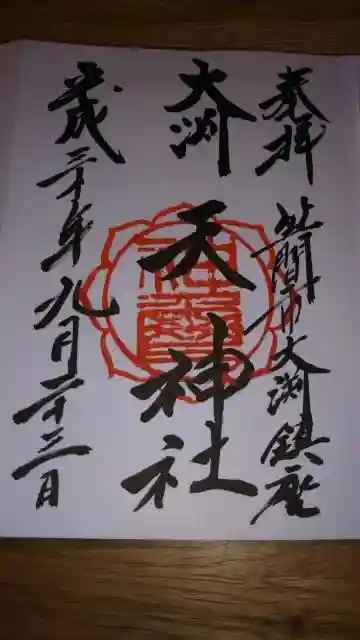 奉拝
笠間市大渕鎮座
大渕
天神社
平成三十年九月二十三日